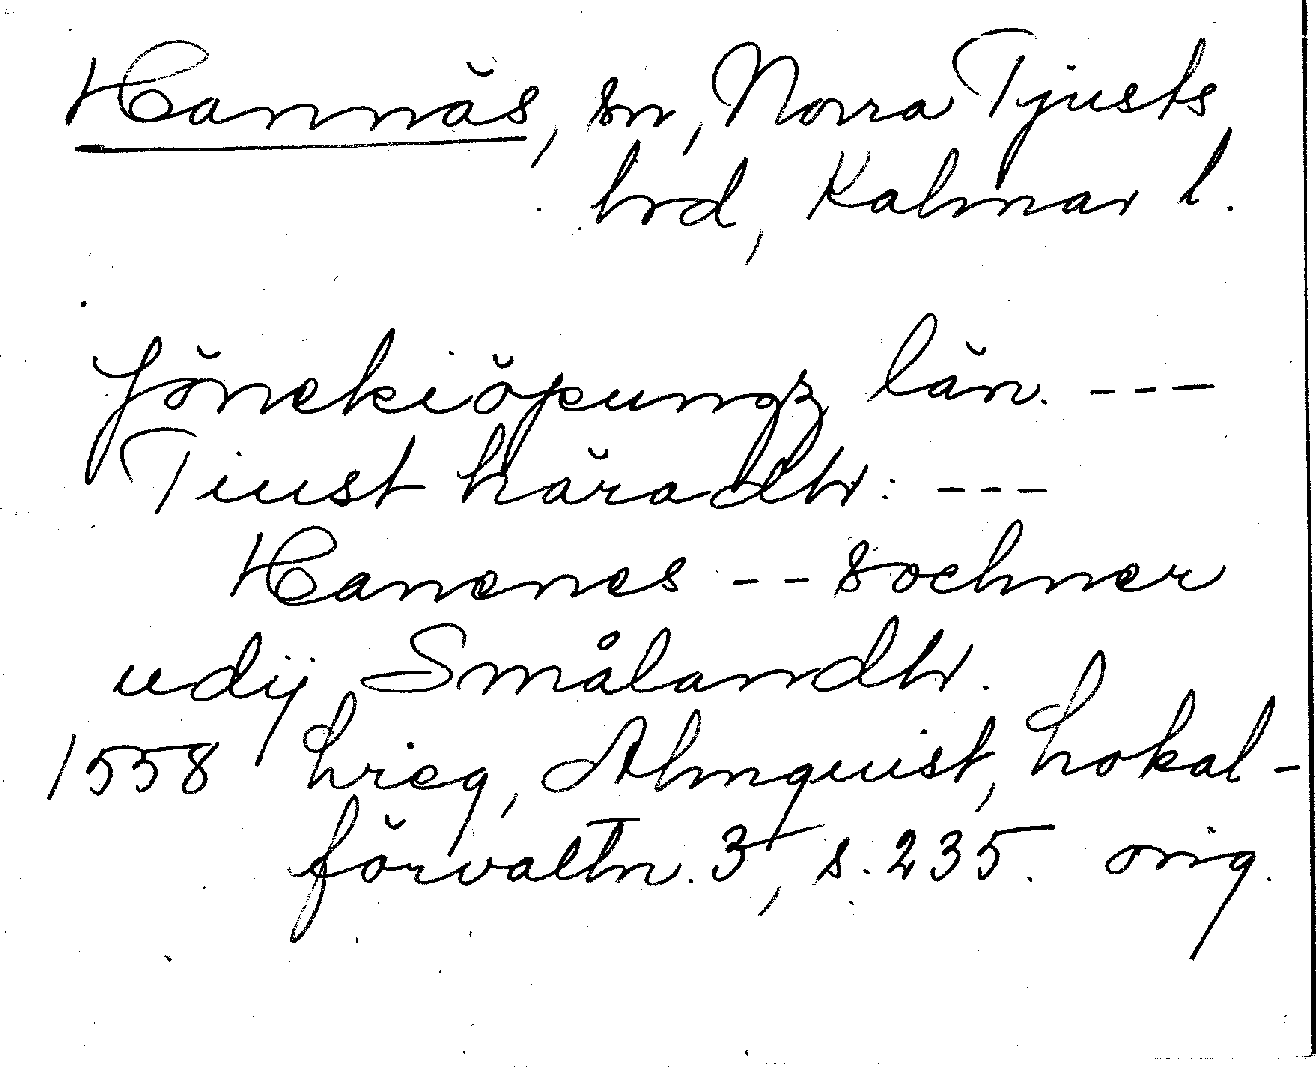 Hannäs, sn, Norra Tjusts
hrd, Kalmar l.
Jönekiöpungz län. ---
Tiust häradhr: ---
Hanenes -- sochner
udij Smålandhr.
1558 hreg, Almquist, Lokal-
förvaltn. 3, s. 235. orig.